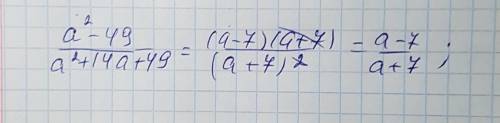 (a² - 49)/(a² + 14a + 49) = ((a - 7)(a + 7))/((a + 7)²) = (a - 7)/(a + 7) ;